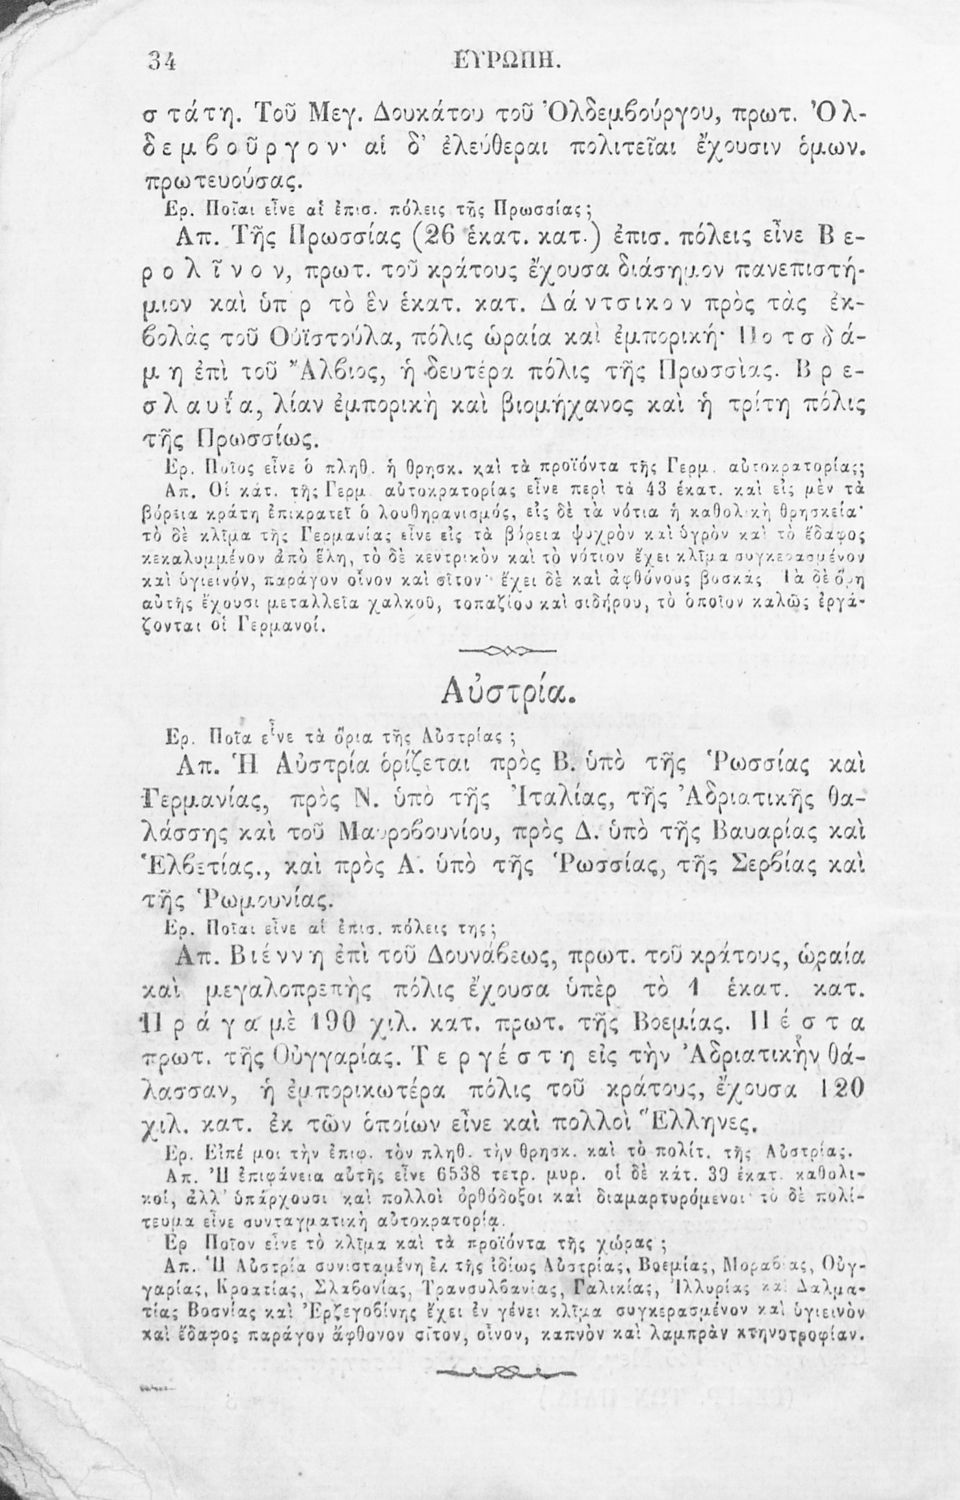 34 ΕΥΡΩΠΗ.
στάτη. Τοῦ Μεγ. Δουκάτου τοῦ Ὀλδεμβούργου, πρωτ. Ὀλ-
δεμβοῦργον· αἱ δ’ ἐλεύθεραι πολιτεῖαι ἔχουσιν ὁμων.
πρωτευούσας.
Ερ. Ποῖαι εἶνε αἱ ἐπισ. πόλεις τῆς Πρωσσίας;
Απ. Τῆς Πρωσσίας (26 ἑκατ. κατ.) ἐπισ. πόλεις εἶνε Βε-
ρολῖνον, πρωτ. τοῦ κράτους ἔχουσα διάσημον πανεπιστή-
μιον καὶ ὑπ ρ τὸ ἓν ἑκατ. κατ. Δάντσικον πρὸς τὰς ἐκ-
βολὰς τοῦ Οὐϊστούλα, πόλις ὡραία καὶ ἐμπορική· Ποτσδά-
μη ἐπὶ τοῦ Ἄλβιος, ἡ δευτέρα πόλις τῆς Πρωσσίας. Βρε-
σλαυΐα, λίαν ἐμπορικὴ καὶ βιομήχανος καὶ ἡ τρίτη πόλις
τῆς Πρωσσίως.
Ερ. Ποῖος εἶνε ὁ πληθ. ἡ θρησκ. καὶ τὰ προϊόντα τῆς Γερμ. αὐτοκρατορίας;
Απ. Οἱ κάτ. τῆς Γερμ αὐτοκρατορίας εἶνε περὶ τὰ 43 ἑκατ. καὶ εἰς μὲν τὰ
βόρεια κράτη ἐπικρατεῖ ὁ λουθηρανισμός, εἰς δὲ τὰ νότια ἡ καθολικὴ θρησκεία·
τὸ δὲ κλῖμα τῆς Γερμανίας εἶνε εἰς τὰ βόρεια ψυχρὸν καὶ ὑγρὸν καὶ τὸ ἔδαφος
κεκαλυμμένον ἀπὸ ἕλη, τὸ δὲ κεντρικὸν καὶ τὸ νότιον ἔχει κλῖμα συγκερασμένον
καὶ ὑγιεινόν, παράγον οἶνον καὶ σῖτον· ἔχει δὲ καὶ ἀφθόνους βοσκάς Τὰ δὲ ὄρη
αὐτῆς ἔχουσι μεταλλεῖα χαλκοῦ, τοπαζίου καὶ σιδήρου, τὸ ὁποῖον καλῶς ἐργά-
ζονται οἱ Γερμανοί.
Αὐστρία.
Ερ. Ποῖα εἶνε τὰ ὅρια τῆς Αὐστρίας;
Απ. Ἡ Αὐστρία ὁρίζεται πρὸς Β. ὑπὸ τῆς Ῥωσσίας καὶ
Γερμανίας, πρὸς Ν. ὑπὸ τῆς Ἰταλίας, τῆς Ἀδριατικῆς θα-
λάσσης καὶ τοῦ Μαυροβουνίου, πρὸς Δ. ὑπὸ τῆς Βαυαρίας καὶ
Ἑλβετίας., καὶ πρὸς Α. ὑπὸ τῆς Ῥωσσίας, τῆς Σερβίας καὶ
τῆς Ῥωμουνίας.
Ερ. Ποῖαι εἶνε αἱ ἐπισ. πόλεις της;
Απ. Βιέννη ἐπὶ τοῦ Δουνάβεως, πρωτ. τοῦ κράτους, ὡραία
καὶ μεγαλοπρεπὴς πόλις ἔχουσα ὑπὲρ τὸ 1 ἑκατ. κατ.
Πράγα μὲ 190 χιλ. κατ. πρωτ. τῆς Βοεμίας. Πέστα
πρωτ. τῆς Οὑγγαρίας. Τεργέστη εἰς τὴν Ἀδριατικὴν θά-
λασσαν, ἡ ἐμπορικωτέρα πόλις τοῦ κράτους, ἔχουσα 120
χιλ. κατ. ἐκ τῶν ὁποίων εἶνε καὶ πολλοὶ Ἕλληνες.
Ερ. Εἰπέ μοι τὴν ἐπιφ. τὸν πληθ. τὴν θρησκ. καὶ τὸ πολίτ. τῆς Αὐστρίας.
Απ. Ἡ ἐπιφάνεια αὐτῆς εἶνε 6538 τετρ. μυρ. οἱ δὲ κάτ. 39 ἑκατ. καθολι-
κοί, ἀλλ’ ὑπάρχουσι καὶ πολλοὶ ὀρθόδοξοι καὶ διαμαρτυρόμενοι· τὸ δὲ πολί-
τευμα εἶνε συνταγματικὴ αὐτοκρατορία.
Ερ Ποῖον εἶνε τὸ κλῖμα καὶ τὰ προϊόντα τῆς χώρας;
Απ. Ἡ Αὐστρία συνισταμένη ἐκ τῆς ἰδίως Αὐστρίας, Βοεμίας, Μοραβίας, Οὑγ-
γαρίας, Κροατίας, Σλαβονίας, Τρανσυλβανίας, Γαλικίας, Ἰλλυρίας καὶ Δαλμα-
τίας Βοσνίας καὶ Ἐρζεγοβίνης ἔχει ἐν γένει κλῖμα συγκερασμένον καὶ ὑγιεινὸν
καὶ ἔδαφος παράγον ἄφθονον σῖτον, οἶνον, καπνὸν καὶ λαμπρὰν κτηνοτροφίαν.